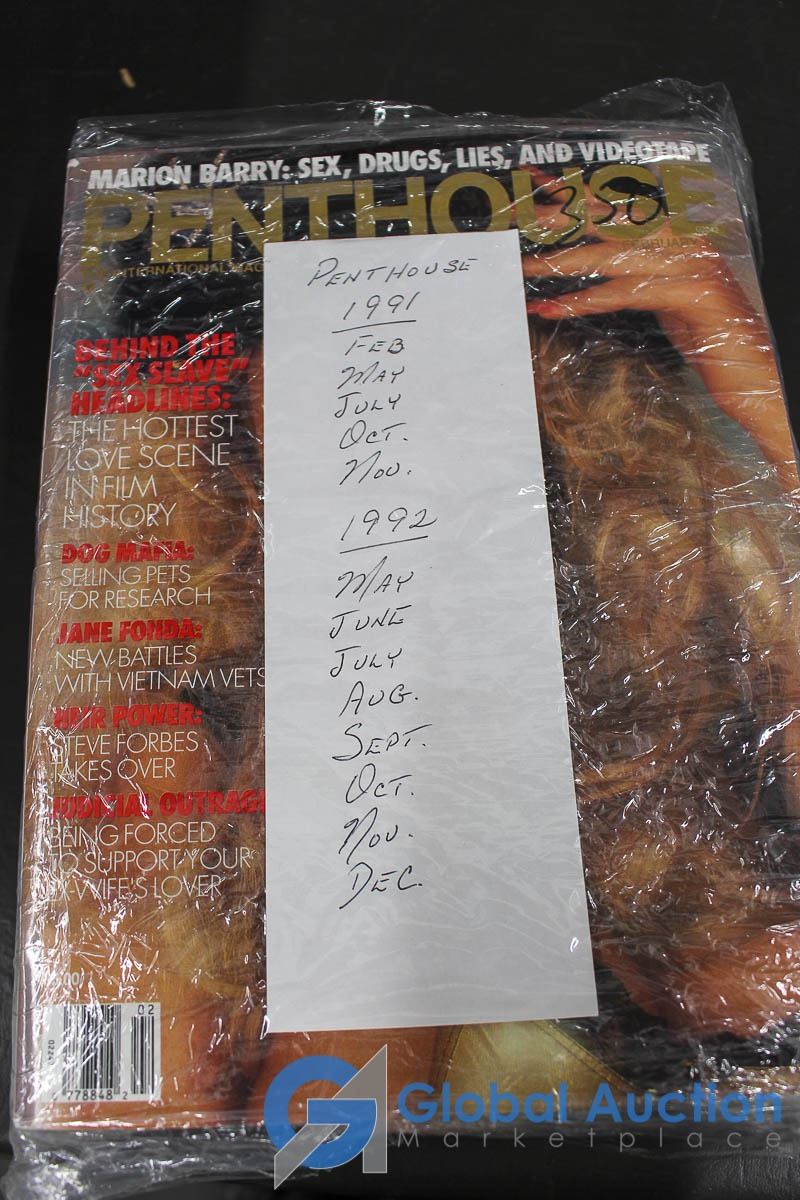 MARION BARRY: SEX, DRUGS, LIES, AND VIDEOTAPE
PENTHOUSE
350
INTERNATIONAL MAG
FEBRUARY
BEHIND THE
"SEX SLAVE"
HEADLINES:
THE HOTTEST
LOVE SCENE
IN FILM
HISTORY
DOG MAFIA:
SELLING PETS
FOR RESEARCH
JANE FONDA:
NEW BATTLES
WITH VIETNAM VETS
HEIR POWER:
STEVE FORBES
TAKES OVER
JUDICIAL OUTRAGE
BEING FORCED
TO SUPPORT YOUR
EX-WIFE'S LOVER
PENTHOUSE
1991
FEB
MAY
JULY
OCT.
NOV.
1992
MAY
JUNE
JULY
AUG.
SEPT.
OCT.
NOV.
DEC.
02
778848 2
Global Auction
Marketplace